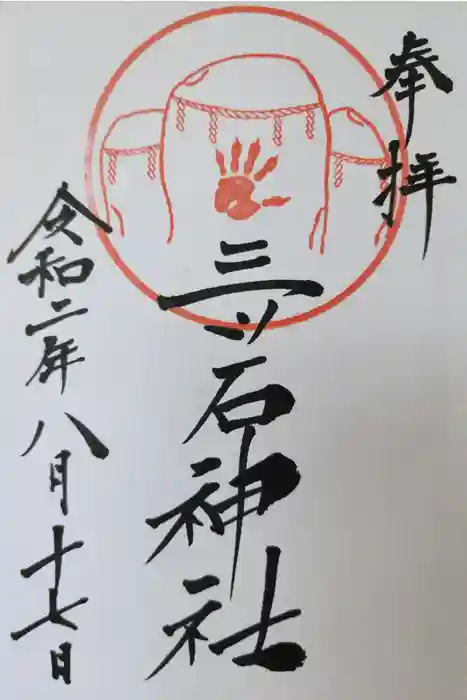 奉拝
三ツ石神社
令和二年八月十七日